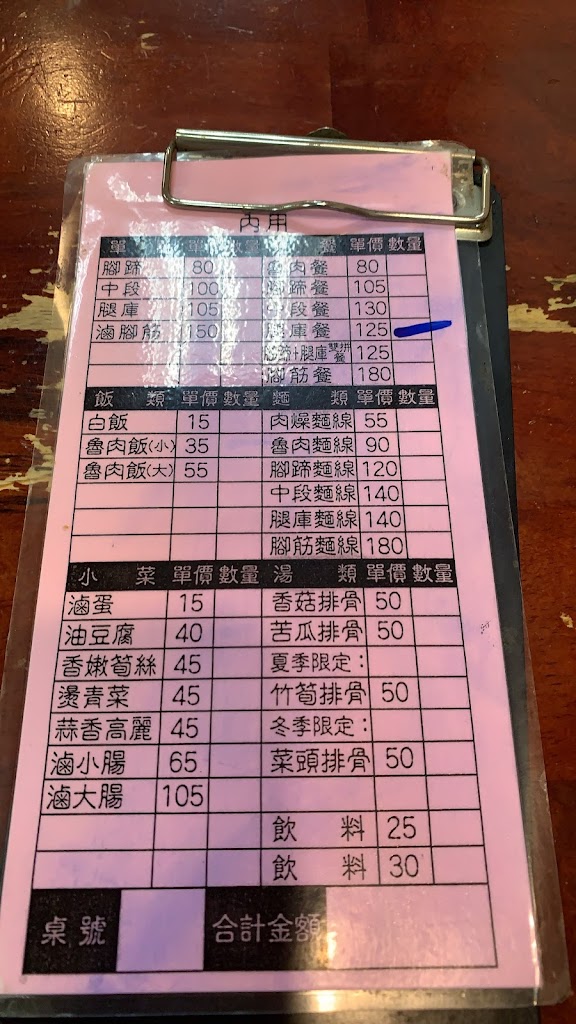 內用
單 單價 數量 餐 單價 數量
腳蹄 80 魯肉餐 80
中段 100 腳蹄餐 105
腿庫 105 中段餐 130
滷腳筋 150 腿庫餐 125
腿庫雙拼餐 125
腳筋餐 180
飯 類 單價 數量 麵 類 單價 數量
白飯 15 肉燥麵線 55
魯肉飯(小) 35 魯肉麵線 90
魯肉飯(大) 55 腳蹄麵線 120
中段麵線 140
腿庫麵線 140
腳筋麵線 180
小 菜 單價 數量 湯 類 單價 數量
滷蛋 15 香菇排骨 50
油豆腐 40 苦瓜排骨 50
香嫩筍絲 45 夏季限定：
燙青菜 45 竹筍排骨 50
蒜香高麗 45 冬季限定：
滷小腸 65 菜頭排骨 50
滷大腸 105
飲 料 25
飲 料 30
桌號 合計金額